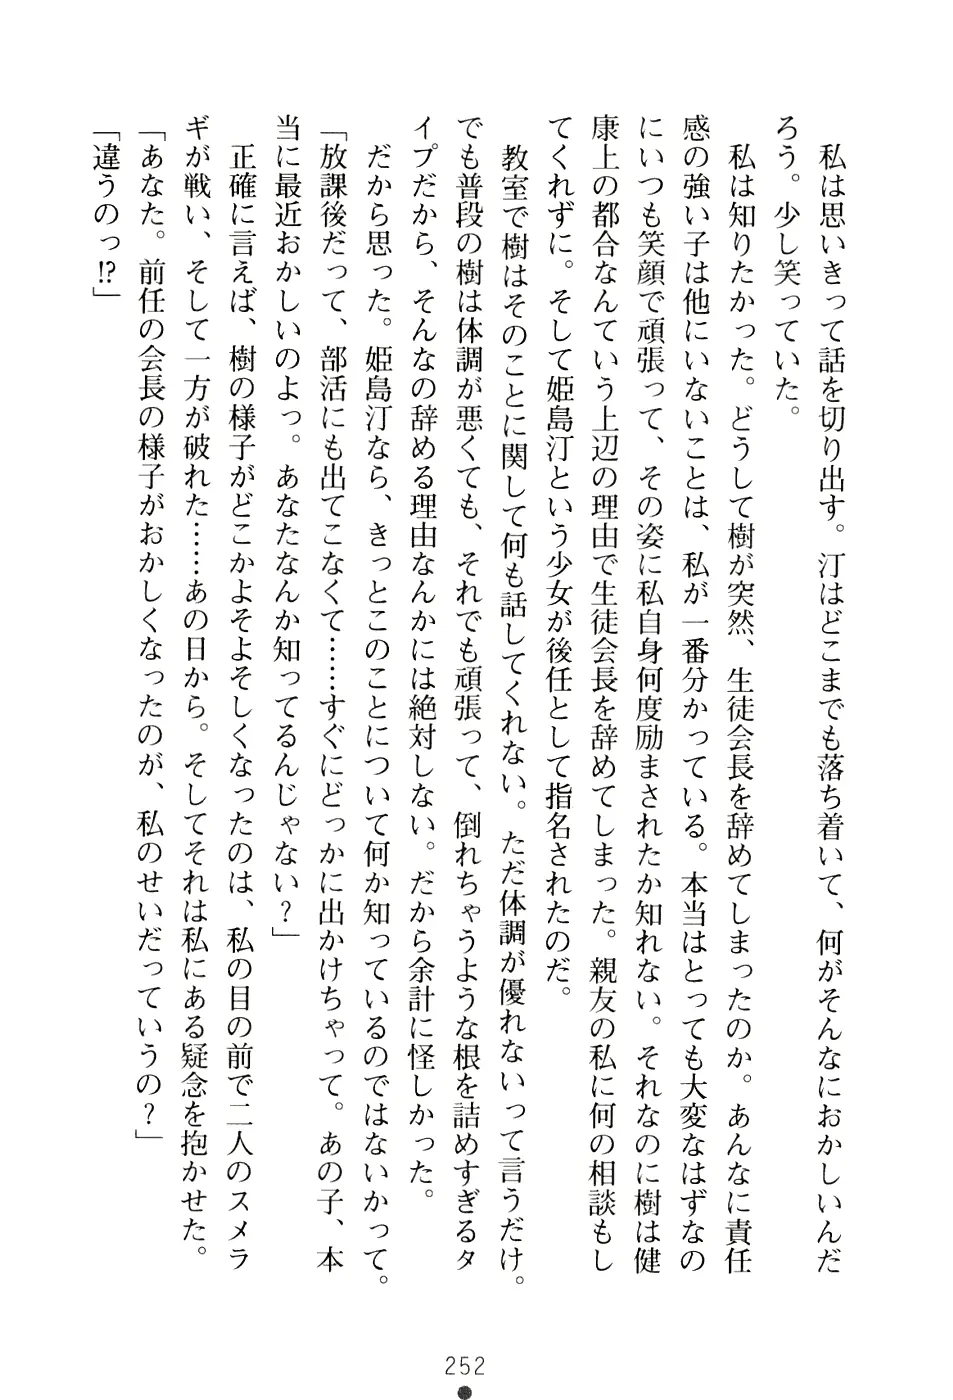 私は思いきって話を切り出す。汀はどこまでも落ち着いて、何がそんなにおかしいんだ
ろう。少し笑っていた。
　私は知りたかった。どうして樹が突然、生徒会長を辞めてしまったのか。あんなに責任
感の強い子は他にいないことは、私が一番分かっている。本当はとっても大変なはずなの
にいつも笑顔で頑張って、その姿に私自身何度励まされたか知れない。それなのに樹は健
康上の都合なんていう上辺の理由で生徒会長を辞めてしまった。親友の私に何の相談もし
てくれずに。そして姫島汀という少女が後任として指名されたのだ。
　教室で樹はそのことに関して何も話してくれない。ただ体調が優れないって言うだけ。
でも普段の樹は体調が悪くても、それでも頑張って、倒れちゃうような根を詰めすぎるタ
イプだから、そんなの辞める理由なんかには絶対しない。だから余計に怪しかった。
　だから思った。姫島汀なら、きっとこのことについて何か知っているのではないかって。
「放課後だって、部活にも出てこなくて……すぐにどっかに出かけちゃって。あの子、本
当に最近おかしいのよっ。あなたなんか知ってるんじゃない？」
　正確に言えば、樹の様子がどこかよそよそしくなったのは、私の目の前で二人のスメラ
ギが戦い、そして一方が破れた……あの日から。そしてそれは私にある疑念を抱かせた。
「あなた。前任の会長の様子がおかしくなったのが、私のせいだっていうの？」
「違うのっ!?」
252